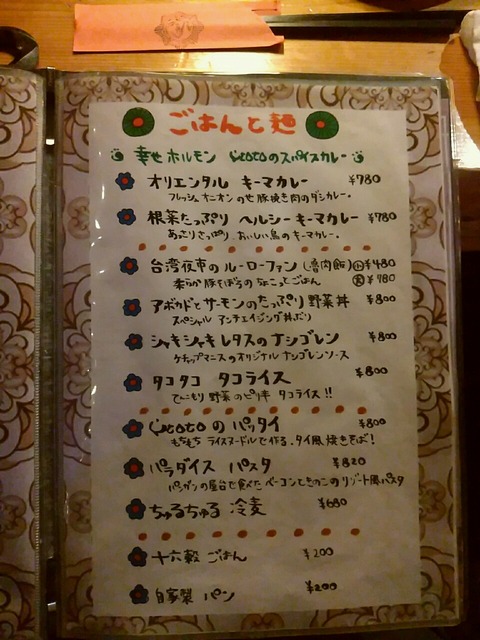 ごはんと麺
幸せホルモン COTOTOのスパイスカレー
オリエンタル キーマカレー ¥780
フレッシュオニオンのせ 豚挽き肉のダシカレー。
根菜たっぷり ヘルシーキーマカレー ¥780
あっさりさっぱり、おいしい鳥のキーマカレー。
台湾夜市のルーローファン(魯肉飯) 小¥480
柔らか豚そぼろの ごはん 大¥780
アボカドとサーモンのたっぷり野菜丼 ¥800
スペシャル アンチエイジング丼だり
シャキシャキレタスのナシゴレン ¥800
ケチャップマニスのオリジナル ナシゴレンソース
タコタコ タコライス ¥800
てんこもり野菜のピリ辛 タコライス!!
のパッタイ ¥800
もちもち ライスヌードルで作る、タイ風焼きそば!
パラダイス パスタ ¥820
パンガンの屋台で食べた ベーコンときのこのリゾート風パスタ
ちゅるちゅる 冷麦 ¥680
十六穀 ごはん ¥200
自家製 パン ¥200